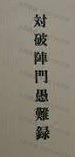 対破陣門愚難録